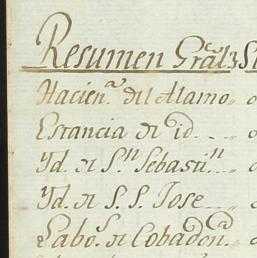 Resumen Gral
Hacien.ª del Alamo
Estancia de id.
Yd. de S.n Sebasti.n
Yd. de S. S. Jose
Labo.s de Cobadon.a